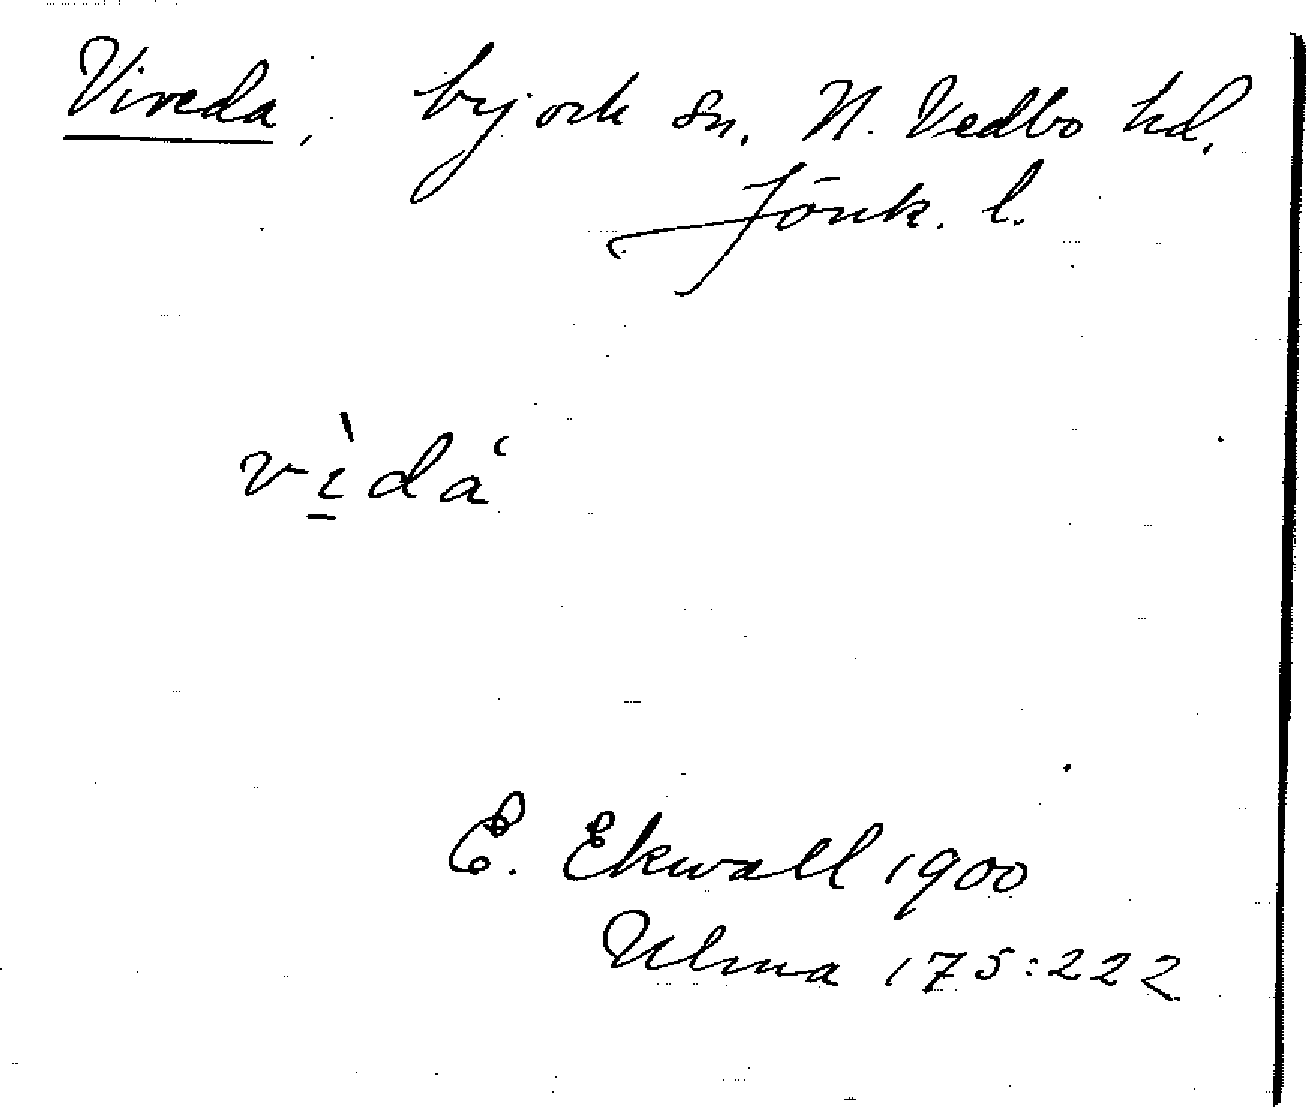 Vireda, by och sn. N. Vedbo hd.
Jönk. l.
vì̱da‘
E. Ekwall 1900
Ulma 175:222